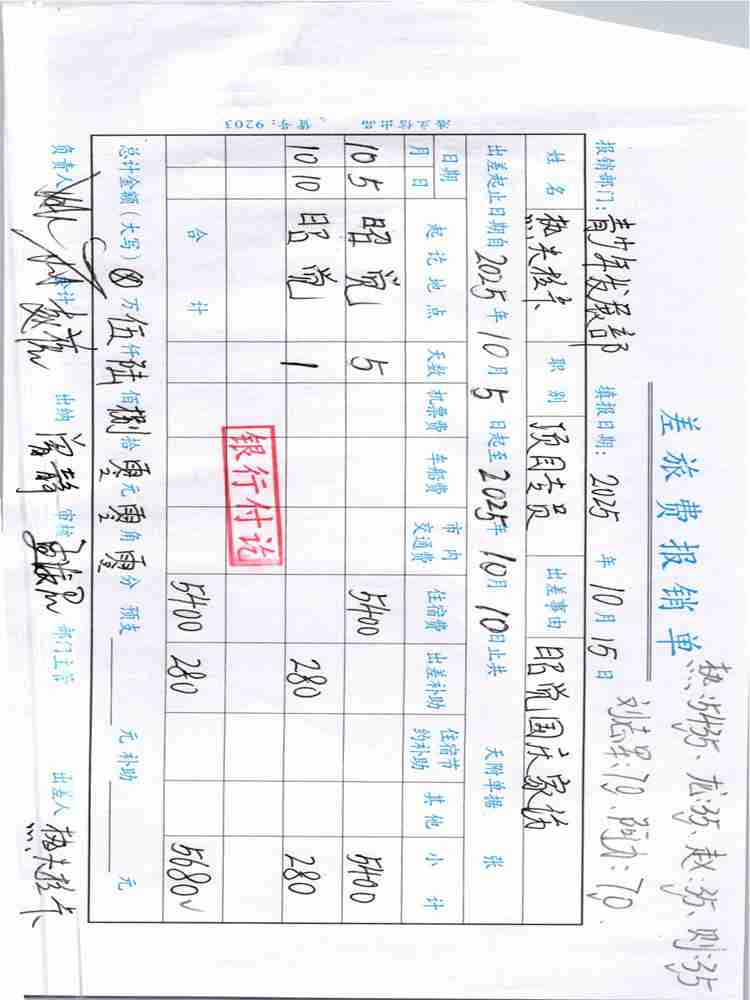 差旅费报销单
热:5435、龙:35、赵:35、则:35
刘志军:70、阿力:70.
报销部门:青少年发展部 填报日期:2025年10月15日
姓名 热夹拉卡 职别 项目专员 出差事由 昭觉国庆家访
出差起止日期自2025年10月5日起至2025年10月10日止共 天附单据 张
日期 起讫地点 天数 机票费 车船费 市内交通费 住宿费 出差补助 住宿节约补助 其他 小计
月 日
10 5 昭觉 5 5400 5400
10 10 昭觉 1 280 280
银行付讫
合计 5400 280 5680
总计金额(大写)⊗万伍仟陆佰捌拾零元零角零分 预支 元 补助 元
负责人 会计 出纳 审核 部门主管 出差人 热夹拉卡
货号:9203